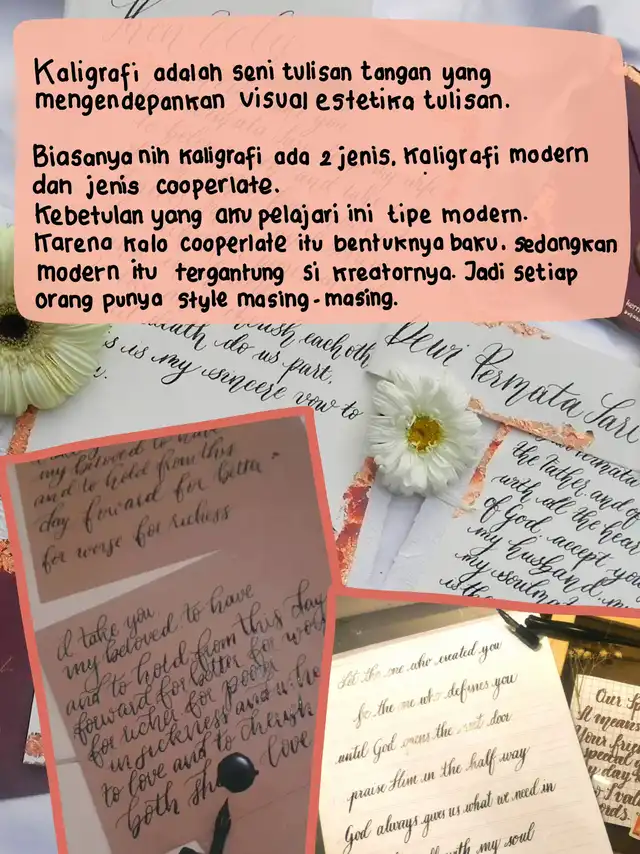 Kaligrafi adalah seni tulisan tangan yang
mengendepankan visual estetika tulisan.
Biasanya nih kaligrafi ada 2 jenis, kaligrafi modern
dan jenis cooperlate.
Kebetulan yang aku pelajari ini tipe modern.
Karena kalo cooperlate itu bentuknya baku. sedangkan
modern itu tergantung si kreatornya. Jadi setiap
orang punya style masing-masing.
each oth
death do us part.
is my sincere vow to
Dewi Permata Sari
the Father, and of
with all the hear
of God. accept you
my husband, my
my soulma
my beloved to have
and to hold from this
day forward for better
for worse for richess
I take you
my beloved to have
and to hold from this day
forward for better for wors
for richer for poor
in sickness and in he
to love and to cherish
both sh
love
Let the one who created you
be the one who defines you
until God opens the next door
praise Him in the half way
God always gives us what we need in
with my soul
Our
It means
Your frie
special
day